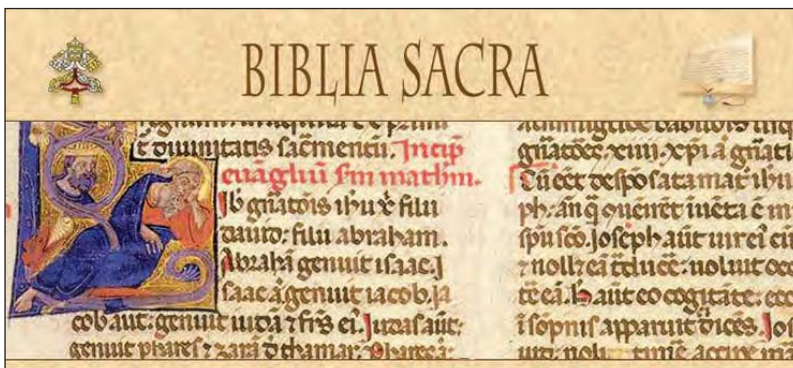 BIBLIA SACRA
t diuinitatis sac̄mentū. Incip̄
euāgliū s̄m math̄m.
lib gn̄atōis ihu x̄ filii
dauid: filii abraham.
Abrahā genuit isaac. J
saac ā genuit iacob. Ja
cob aut: genuit iudā ⁊ fr̄s ei. Judas aūt:
genuit phares ⁊ zarā d thamar. Phares ā:
gn̄atōes. xiiii. xp̄i a gn̄ati
Cū eēt desponsata mat̄ ihu
ph. an̄ q̄ ꝯueirēt īuēta ē in
sp̄u sc̄o. Joseph aūt uir ei cū
⁊ noll& eā t̄duc̄e: uoluit occ
tē eā. h̄ aūt eo cogitāte: ecc
i sopnis apparuit dices. Jos